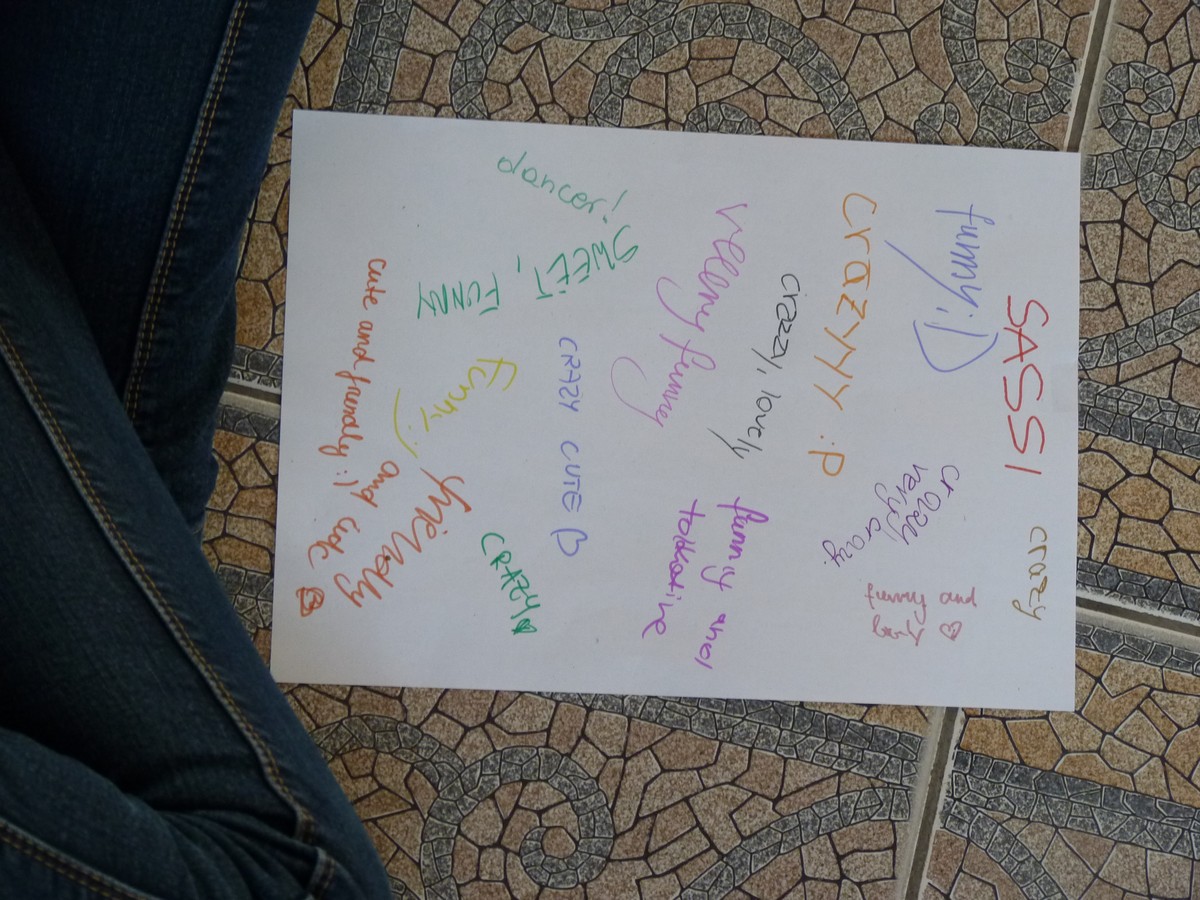 SASSI
crazy
funny;D
crazy
very crazy.
funny and
♡
crazyyy :P
crazy, lovely
veeery funny
funny and
talkative
dancer!
SWEET,
FUNNY
CRAZY CUTE
funny :)
CRAZY♥
friendly
and cute
cute and friendly :)